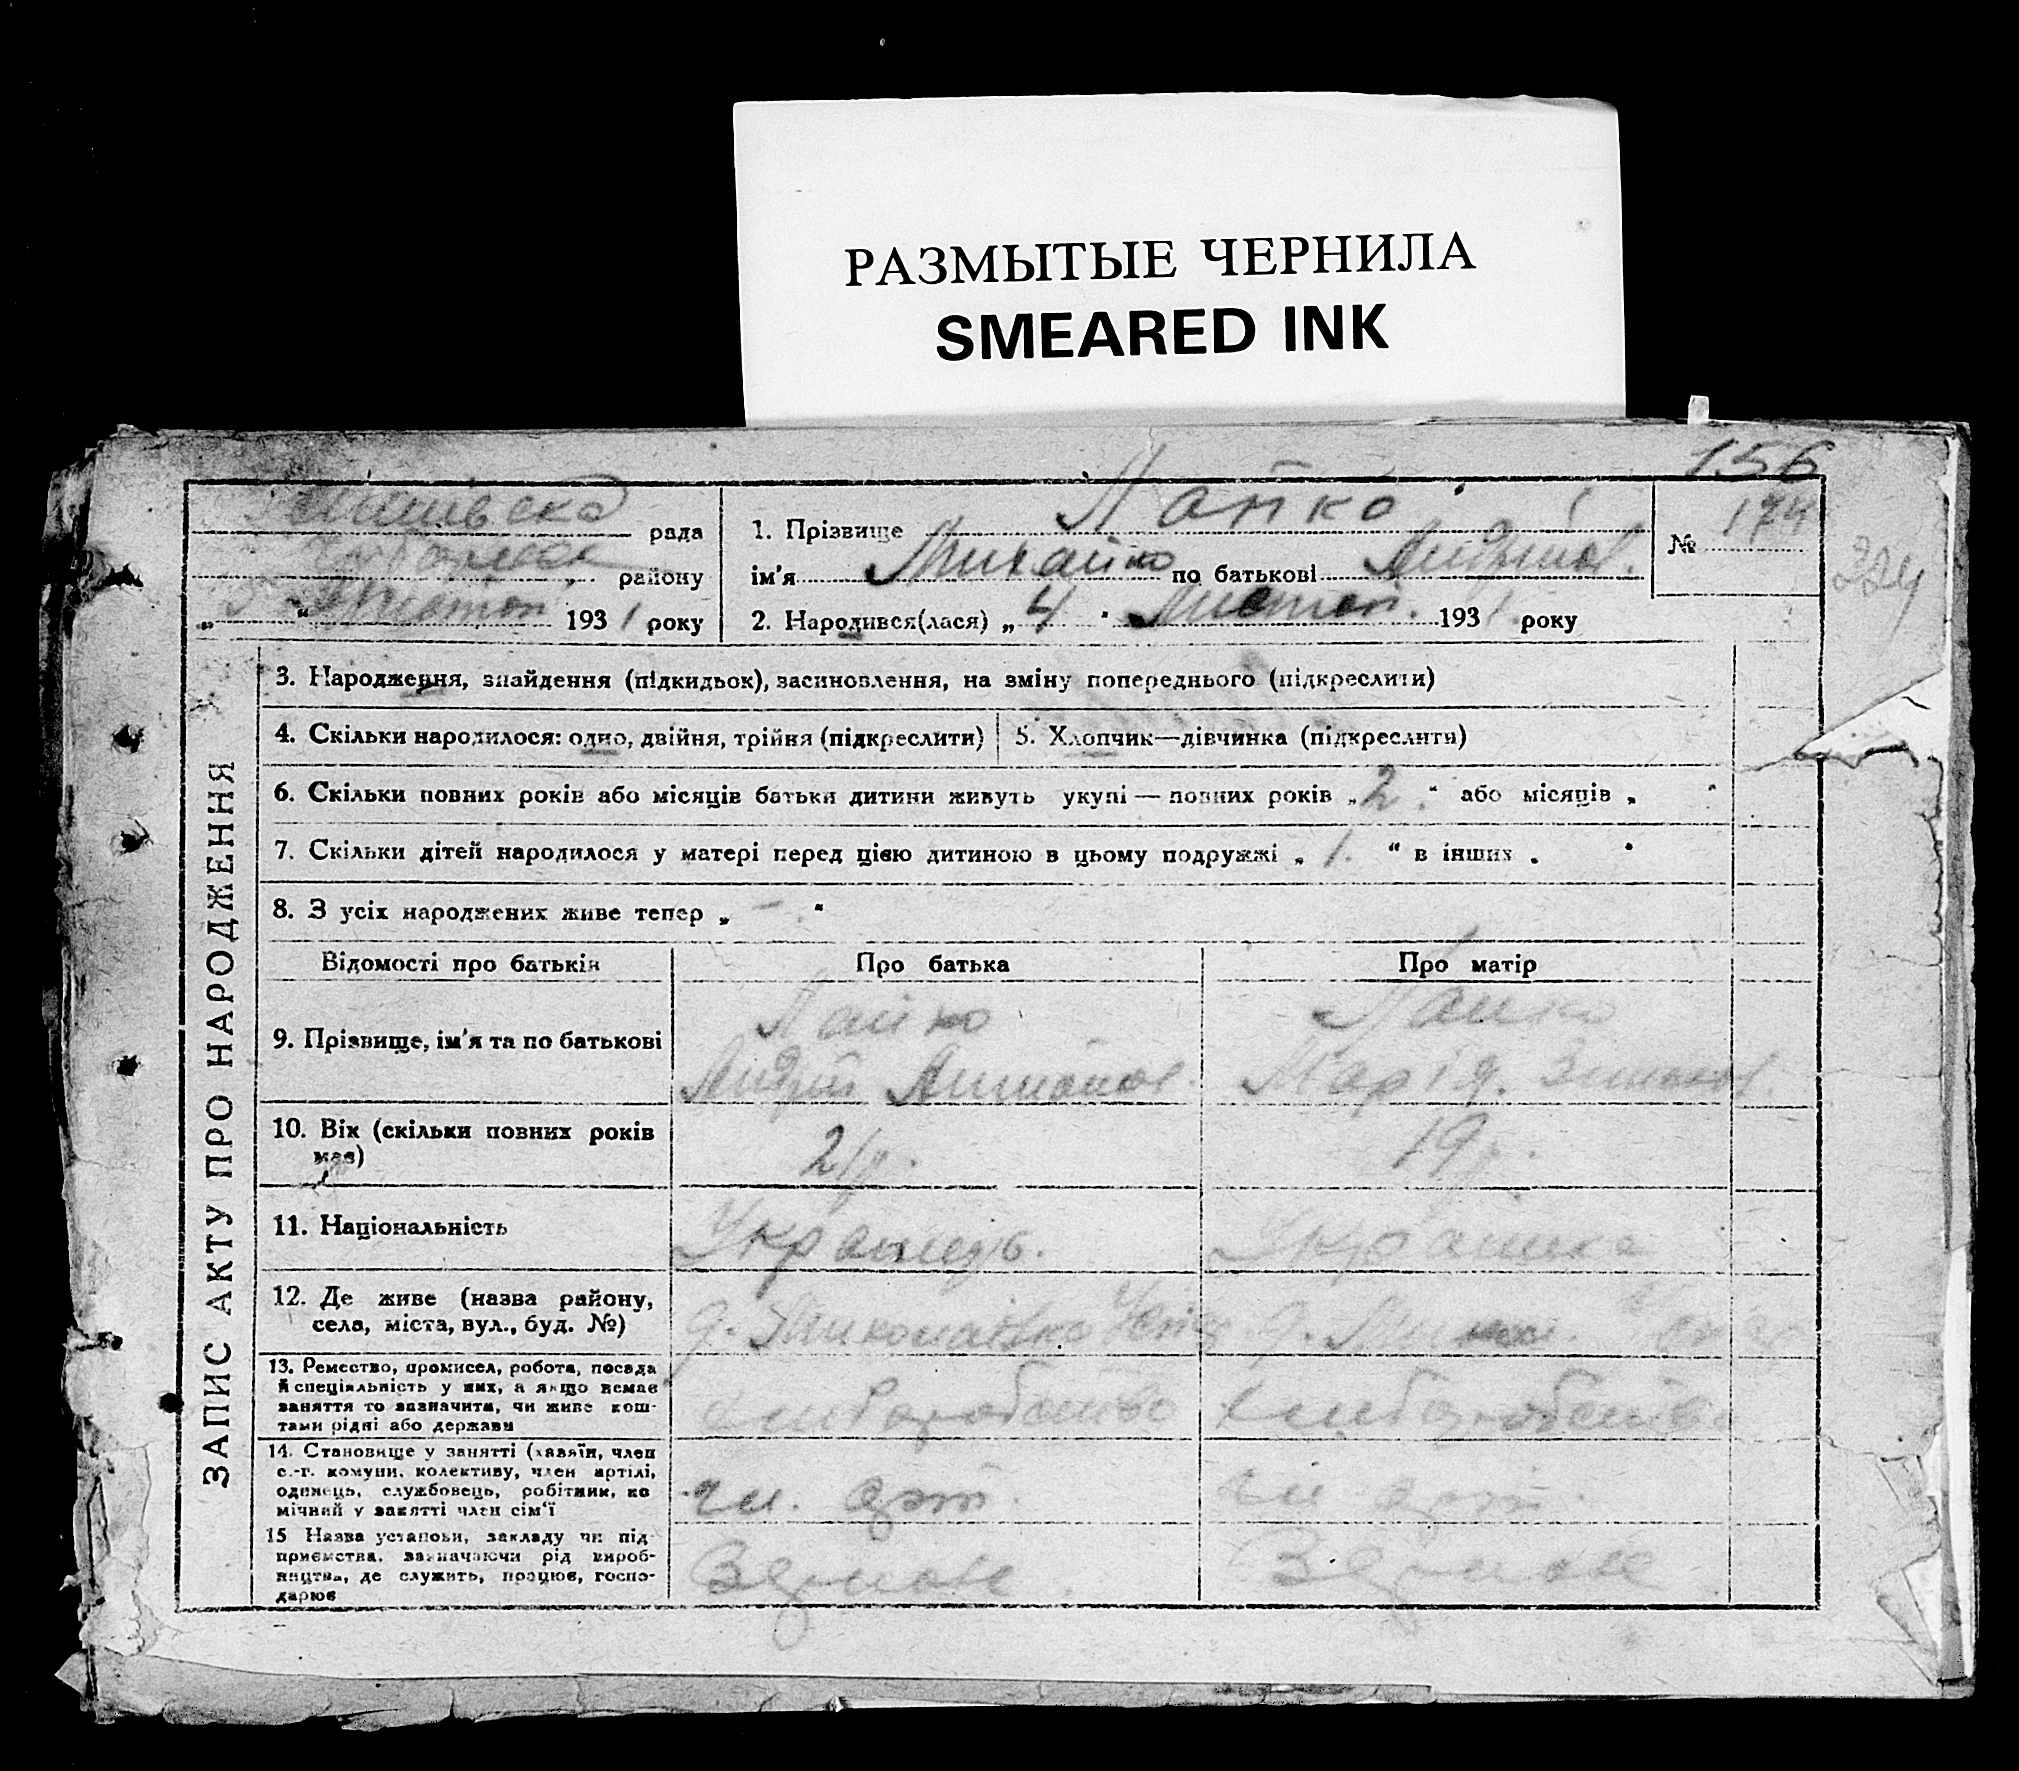 РАЗМЫТЫЕ ЧЕРНИЛА
SMEARED INK
156
рада
1. Прізвище Лапко
№ 174
району
ім'я Михайло по батькові
224
„ “ 1931 року
2. Народився(лася) „ 4 “ Листоп. 1931 року
ЗАПИС АКТУ ПРО НАРОДЖЕННЯ
3. Народження, знайдення (підкидьок), засиновлення, на зміну попереднього (підкреслити)
4. Скільки народилося: одно, двійня, трійня (підкреслити)
5. Хлопчик—дівчинка (підкреслити)
6. Скільки повних років або місяців батьки дитини живуть укупі — повних років „ 2 “ або місяців „ “
7. Скільки дітей народилося у матері перед цією дитиною в цьому подружжі „ 1. “ в інших „ “
8. З усіх народжених живе тепер „ – “
Відомості про батьків
Про батька
Про матір
9. Прізвище, ім'я та по батькові
Лапко
Андрій
Лапко
Марія
10. Вік (скільки повних років
має)
21 р.
19 р.
11. Національність
Українець.
Українка
12. Де живе (назва району,
села, міста, вул., буд. №)
13. Ремество, промисел, робота, посада
й спеціяльність у них, а якщо немає
заняття то зазначити, чи живе кош-
тами рідні або держави
хлібороб
хлібороб
14. Становище у занятті (хазяїн, член
с.-г. комуни, колективу, член артілі,
одинець, службовець, робітник, по
мічний у занятті член сім'ї
чл. арт.
чл. арт.
15 Назва установи, закладу чи під-
приємства, зазначаючи рід вироб-
ництва, де служить, працює, госпо-
дарює